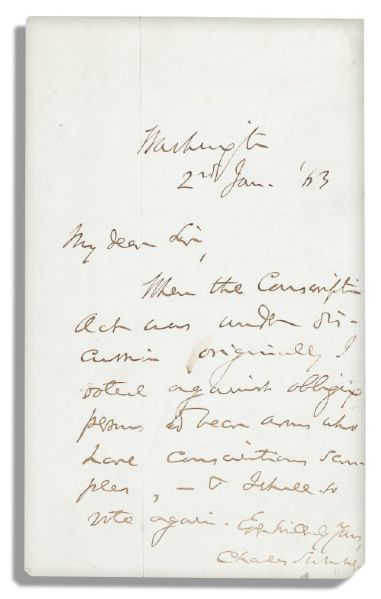 Washington
2nd Jan. '63
My dear Sir,
When the Conscription
Act was under dis-
cussion originally I
voted against obliging
persons to bear arms who
have conscientious scru-
ples, — & I shall so
vote again. Yours,
Charles Sumner